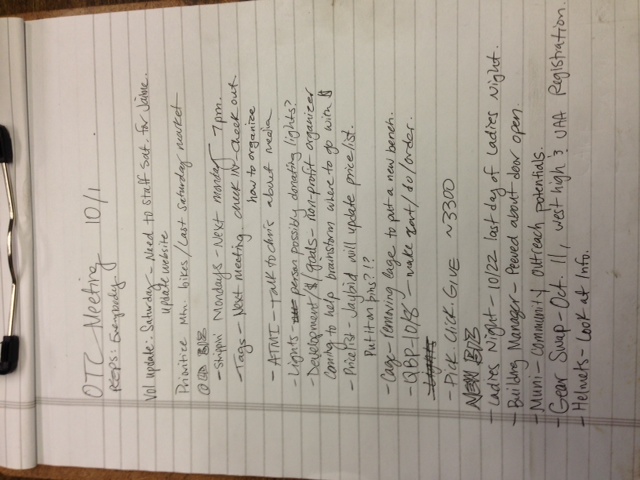 OTC Meeting 10/1
PEEPS: Everybody.
Vol update: Saturday - Need to staff Sat. for Jaime.
update website
Prioritize Mtn. bikes/Last Saturday market
OLD BIZ
- Shippin' Mondays - Next monday 7pm.
- Tags - Next meeting check in - check out.
how to organize
- ATMI - Talk to chris about media
- Lights - person possibly donating lights?
- Development/$/goals - non-profit organizer
coming to help brainstorm where to go with $
- Price list - Jaybid will update price list.
Put it on bins?!?
- Cage - removing cage to put a new bench.
- QBP - 10/8 - make /do/order.
- Lights
- Pick.Click.GIVE ~3300
NEW BIZ
- Ladies Night - 10/22 last day of Ladies Night.
- Building Manager - Peeved about door open.
- Muni - Community outreach potentials.
- Gear Swap - Oct. 11, West high & UAA Registration.
- Helmets - Look at Info.